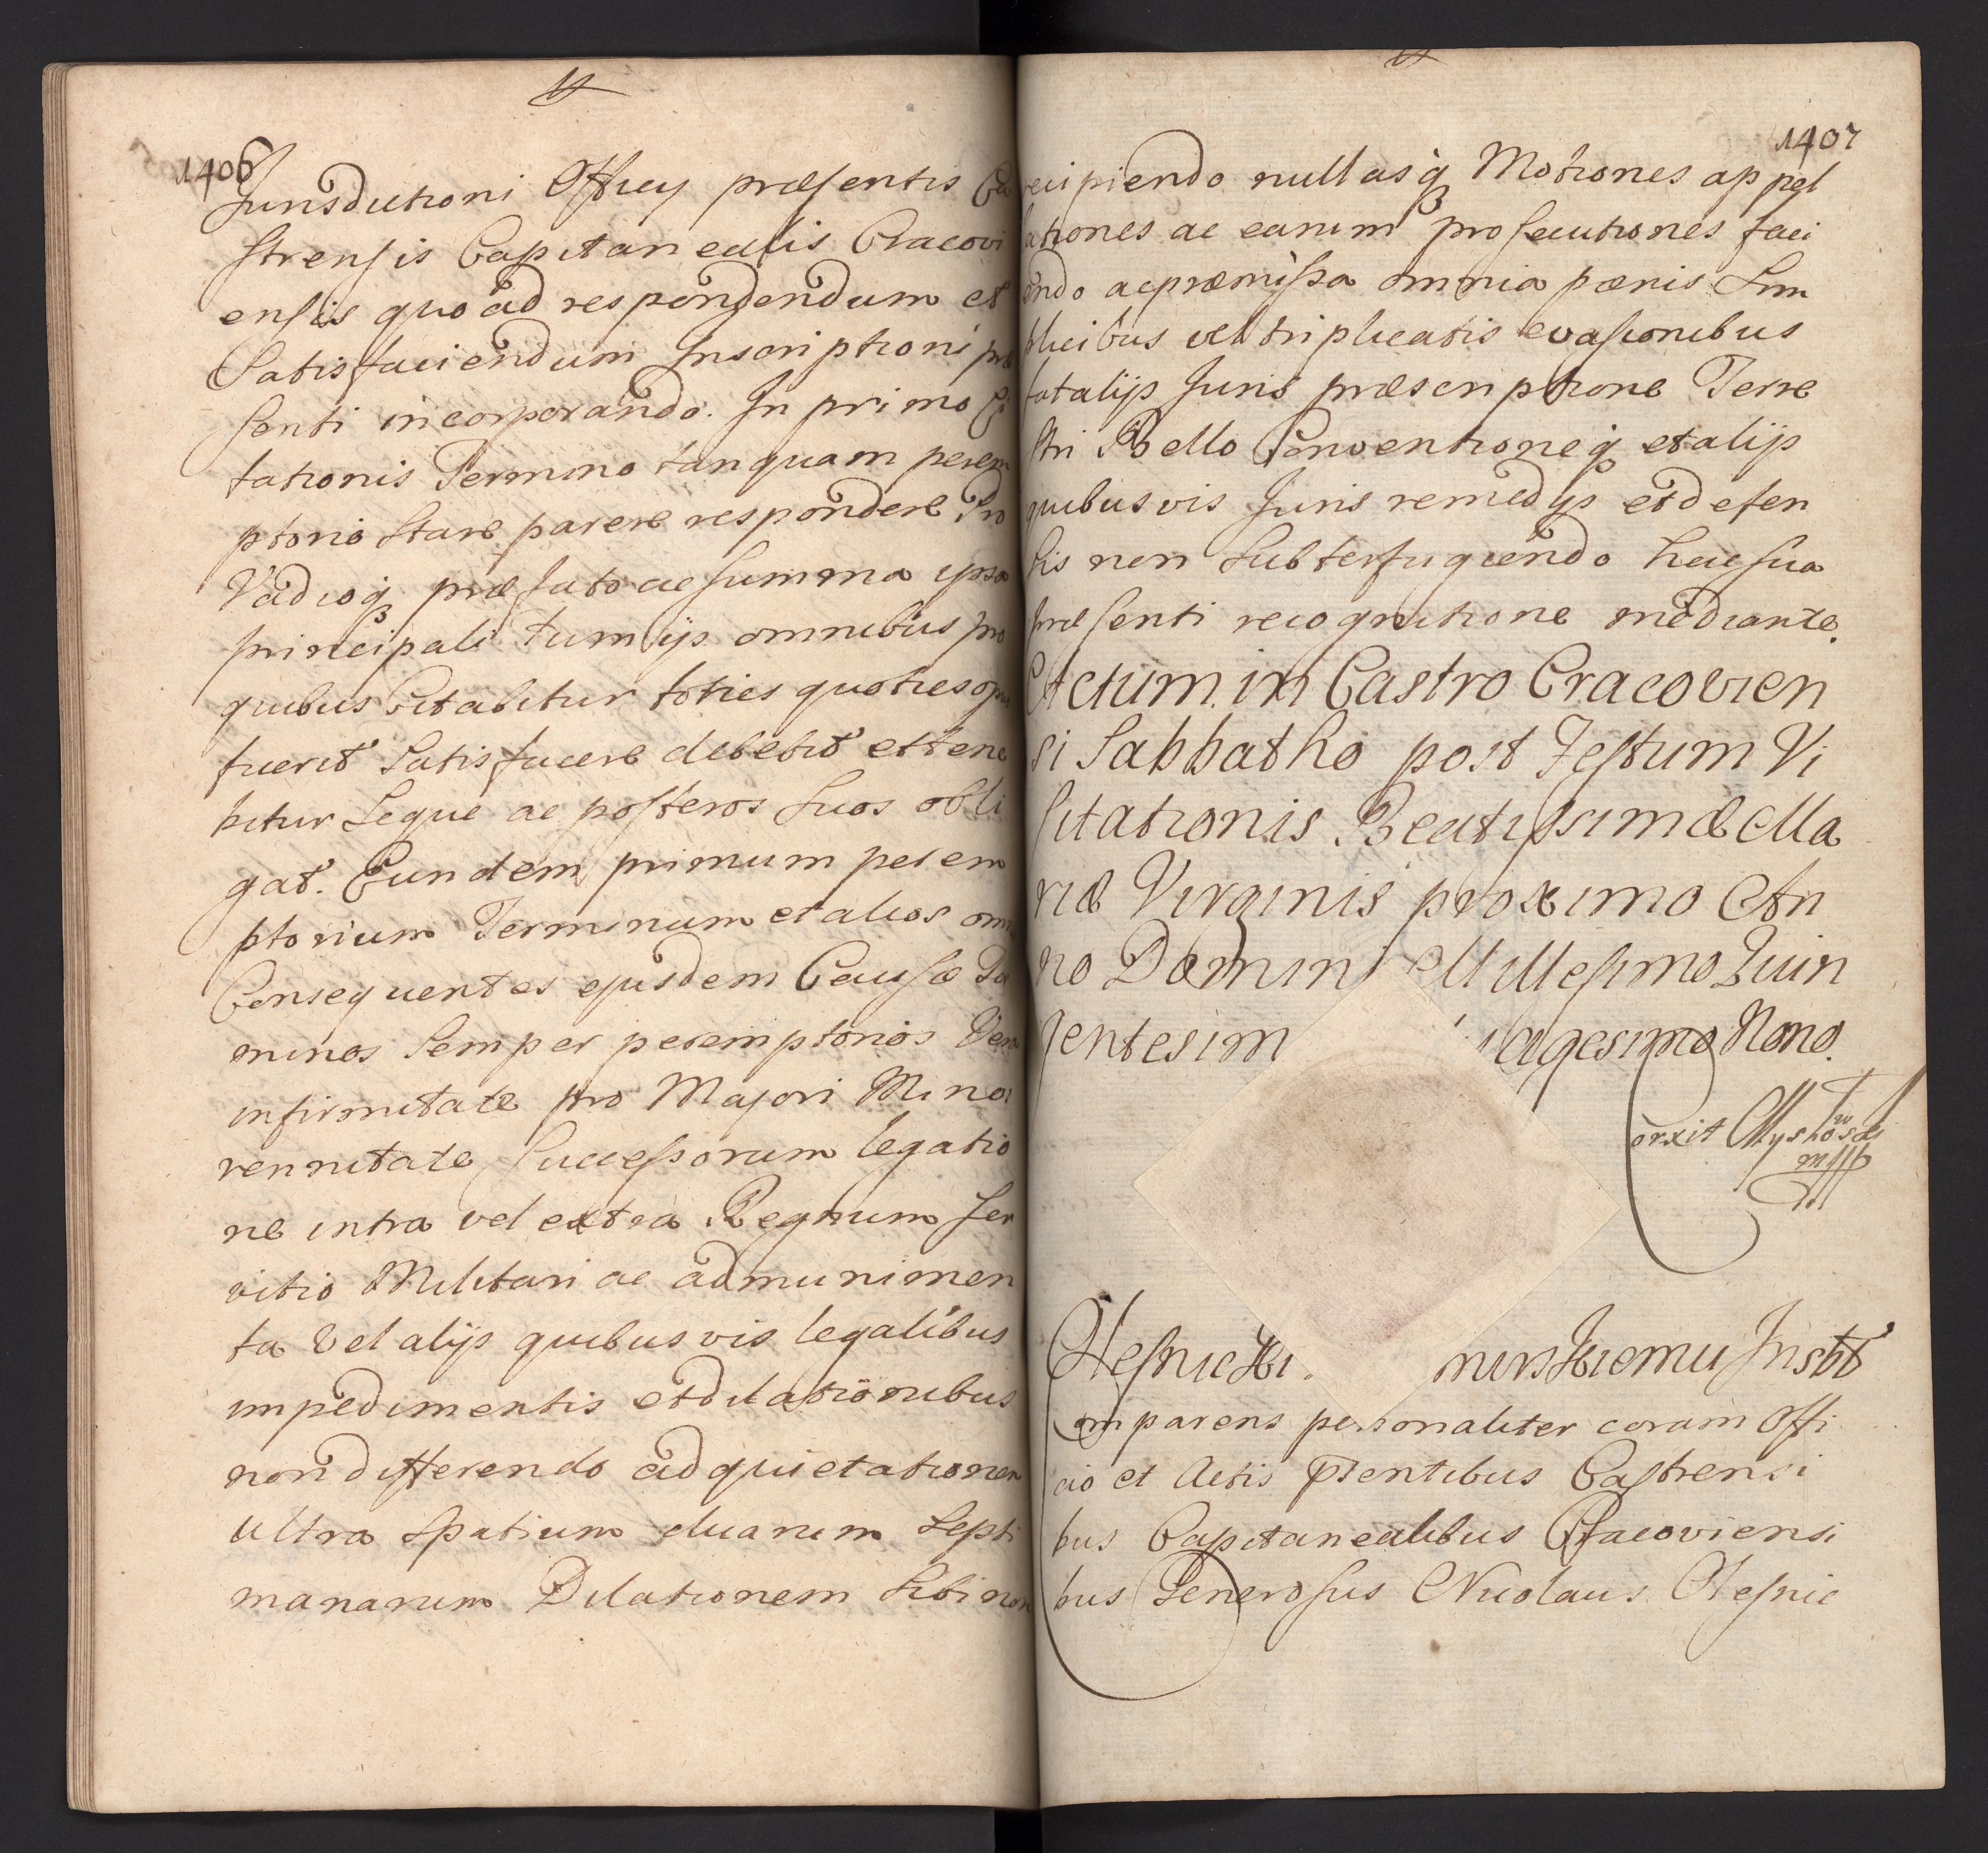 1406
Jurisdictioni Officij præsentis Ca
strensis Capitanealis Cracovi
ensis quo ad respondendum et
Satisfaciendum Inscriptioni præ
senti incorporando. In primo Ci
tationis Termino tanquam perem
ptorio Stare parere respondere
Vadioq præfato ac summa ipsa
principali tum ijs omnibus pro
quibus Citabitur toties quoties opus
fuerit Satisfacere debebit et tene
bitur Seque ac posteros Suos obli
gat. Eundem primum perem
ptorium Terminum et alios omnes
Consequentes ejusdem Causæ
minos Semper peremptorios Vera
infirmitate pro Majori Mino
rennitate Successorum legatio
ne intra vel extra Regnum ser
vitio Militari ac admunimen
ta Vel alijs quibusvis legalibus
impedimentis et dilationibus
non differendo ad quietationem
ultra Spatium duarum Septi
manarum Dilationem Sibi non
1407
recipiendo nullasq Motiones appel
lationes ac earum prosecutiones faci
endo ac præmissa omnia pænis Sim
plicibus vel triplicatis evasionibus
fatalijs Juris præscriptione Terre
stri Bello Conventioneq et alijs
quibusvis Juris remedijs et defen
sis non Subterfugiendo hac sua
præsenti recognitione mediante.
Actum in Castro Cracovien
si Sabbatho post Festum Vi
sitationis Beatissimæ Ma
riæ Virginis proximo An
no Domini Millesimo Quin
gentesim agesimo Nono.
Correxit
mpp
Olesnicki Inscribit
Comparens personaliter coram Offi
cio et Actis Pñtentibus Castrensi
bus Capitanealibus Cracoviensi
bus Generosus Nicolaus Olesnic